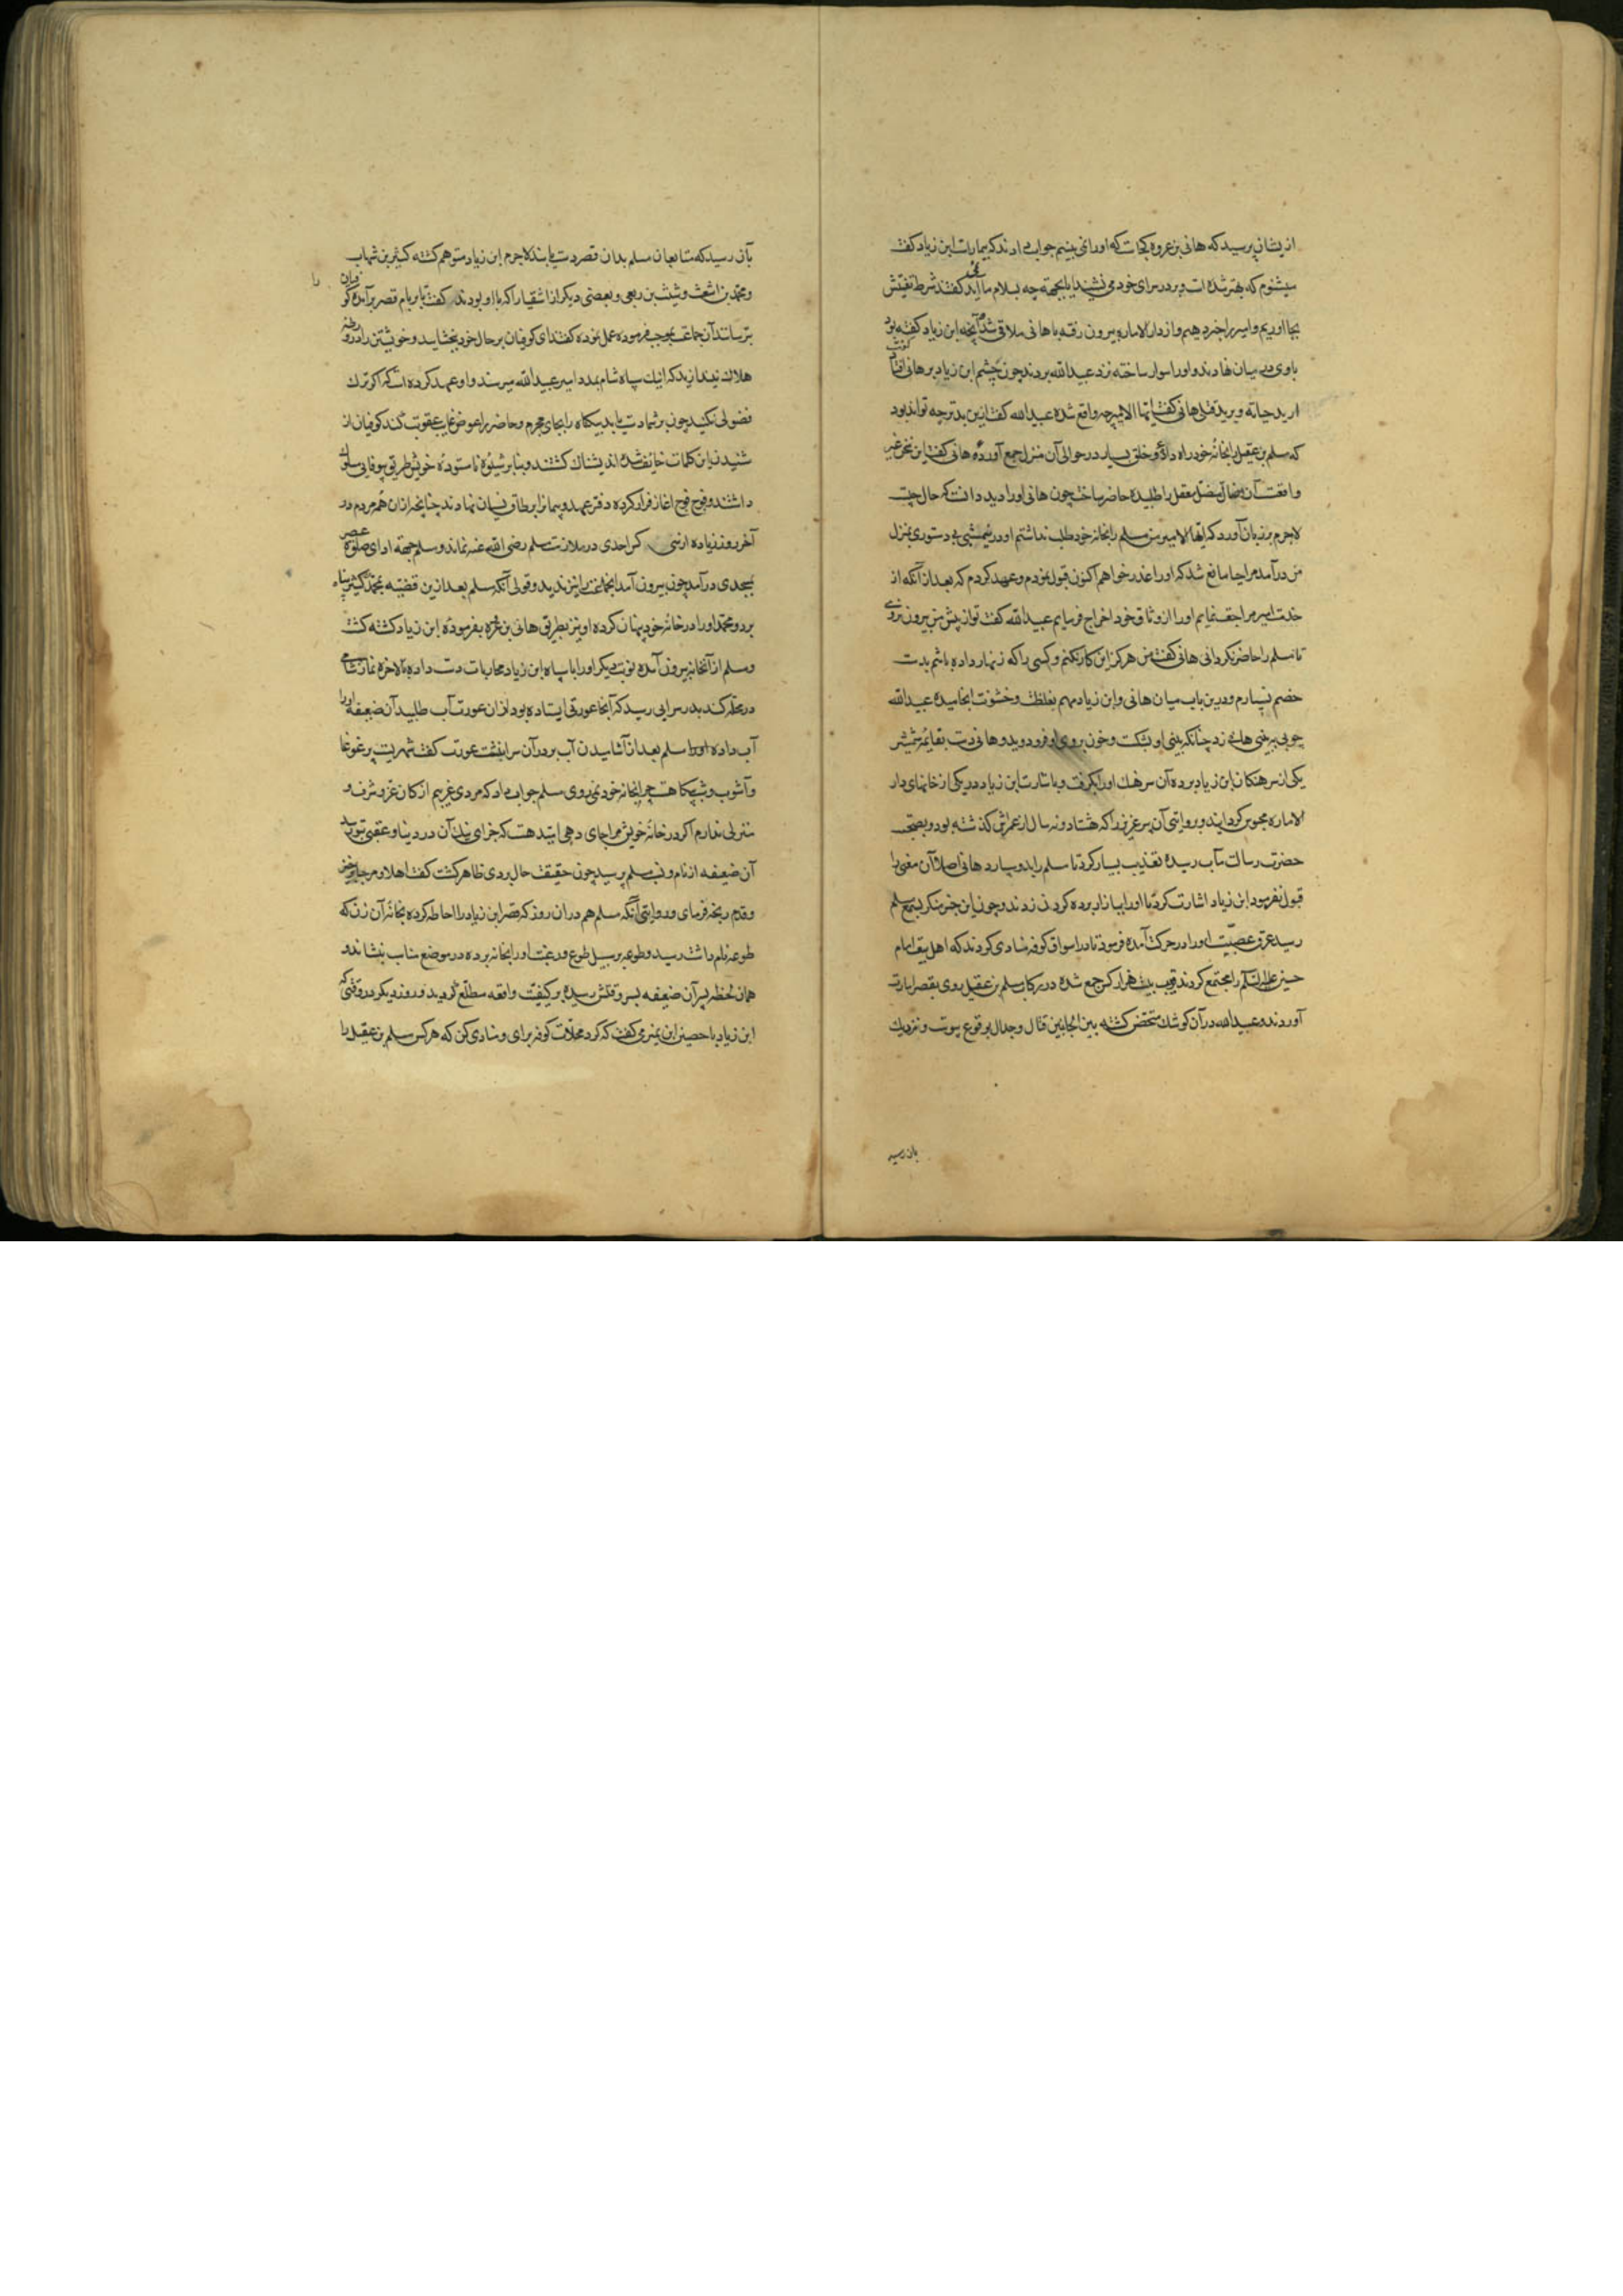 ازیشان پرسید که هانی بن عروه کجاست که اورا نمی بینیم جواب دادند که بیمارست ابن زیاد گفت
میشنوم که بهتر شده است و بر در سرای خود می نشیند ایا بجهة چه بسلام ما نمی اید گفتند شرط تفتیش
بجا اوریم و امیر را خبر دهیم و از دار الاماره بیرون رفته با هانی ملاقی شده آنچه ابن زیاد گفته بود
با وی در میان نهادند و اورا سوار ساخته نزد عبیدالله بردند چون چشم ابن زیاد بر هانی افتاد گفت
ارید حیاته و یرید قتلی هانی گفت ایها الامیر چه واقع شده عبیدالله گفت ازین بدتر چه تواند بود
که مسلم بن عقیل را بخانهٔ خود راه دادهٔ و خلق بسیار در حوالی آن منزل جمع آوردهٔ هانی گفت این سخن غیر
واقعست آن ضال مضل معقل را طلبیده حاضر ساخت چون هانی اورا دید دانست که حال چیست
لاجرم بر زبان آورد که ایها الامیر من مسلم را بخانهٔ خود طلب نداشتم او در نیمشبی بی دستوری بمنزل
من درآمد مرا حیا مانع شد که اورا عذر خواهم اکنون قبول نمودم و عهد کردم که بعد از آنکه از
خدمت امیر مراجعت نمایم اورا از وثاق خود اخراج فرمایم عبیدالله گفت تو از پیش من بیرون نروی
تا مسلم را حاضر نگردانی هانی گفت من هرگز این کار نکنم و کسی را که زنهار داده باشم بدست
خصم نسپارم و درین باب میان هانی و ابن زیاد مهم بغلظت و خشونت انجامیده عبیدالله
چوبی بر بینی هانی زد چنانکه بینی او بشکست و خون بروی او فرو دوید و هانی دست بقایمهٔ شمشیر
یکی از سرهنکان ابن زیاد برده آن سرهنك اورا بگرفت و باشارت ابن زیاد در یکی از خانهای دار
الاماره محبوس گردانیدند و بروایتی آن پیر عزیز را که هشتاد و نه سال از عمرش گذشته بود و بصحبت
حضرت رسالت مآب رسیده تعذیب بسیار کرد تا مسلم را بدو سپارد هانی اصلا آن معنی را
قبول نفرمود ابن زیاد اشارت کرد تا اورا ببازار برده گردن زدند و چون این خبر منکر بسمع مسلم
رسید عرق عصبیت اورا در حرکت آمده فرمود تا در اسواق کوفه منادی کردند که اهل بیعت امام
حسین علیه السلم را مجتمع کردند قریب بیست هزار کس جمع شده در رکاب مسلم بن عقیل روی بقصر امارت
آوردند و عبیدالله در آن کوشك متحصن کشته بین الجانبین قتال و جدال بوقوع پیوست و نزدیك
بان رسید
بآن رسید که متابعان مسلم بدان قصر دست یابند لاجرم ابن زیاد متوهم کشته کثیر بن شهاب
و محمد بن اشعث و شیث بن ربعی و بعضی دیگر از اشقیا را که با او بودند گفت تا بر بام قصر برآمده کوفیان را
بترسانند آن جماعت بموجب فرموده عمل نموده گفتند ای کوفیان بر حال خود ببخشایید و خویشتن را در ورطهٔ
هلاك نیندازید که اینك سپاه شام بمدد امیر عبیدالله میرسند و او عهد کرده است که اگر ترك
فضولی نکنید چون بر شما دست یابد بیگناه را بجای مجرم و حاضر را عوض غایب عقوبت کند کوفیان از
شنیدن این کلمات خایف شده اندیشناك کشتند و بنابر شیوهٔ ناستودهٔ خویش طریق بیوفایی مسلوك
داشتند و فوج فوج اغاز فرار کرده دفتر عهد و پیمان را بر طاق نسیان نهادند چنانچه از ان همه مردم در
آخر روز زیاده از سی کس احدی در ملازمت مسلم رضی الله عنه نماند و مسلم جهة ادای صلوة عصر
بمسجدی درآمد چون بیرون آمد انجماعت را نیز ندید و قولی آنکه مسلم بعد ازین قضیه بمحمد کثیر پناه
برد و محمد اورا در خانهٔ خود پنهان کرده او نیز بطریق هانی بن عروه بفرمودهٔ ابن زیاد کشته کشت
و مسلم از آنخانه بیرون آمده نوبت دیگر اورا با سپاه ابن زیاد محاربات دست داده بالاخره نماز شامی
در محلهٔ کنده بدر سرایی رسید که آنجا عورتی ایستاده بود از ان عورت آب طلبید آن ضعیفه اورا
آب داده مسلم بعد از آشامیدن آب بر در آن سرا بنشست عورت گفت شهریست پر غوغا
و آشوب و شبیکاهست چرا بخانهٔ خود نمیروی مسلم جواب داد که مردی غریبم از کان عز و شرف و
منزلی ندارم اگر در خانهٔ خویش مرا جای دهی امید هست که جزای نیك آن در دنیا و عقبی بتو رسد
آن ضعیفه از نام و نسب مسلم پرسید چون حقیقت حال بروی ظاهر گشت گفت اهلا و مرحبا برخیز
و قدم رنجه فرمای و روایتی آنکه مسلم هم در ان روز که قصر ابن زیاد را احاطه کرده بخانهٔ آن زن که
طوعه نام داشت رسید و طوعه بر سبیل طوع و رغبت اورا بخانه برده در موضع مناسب بنشاند و
همان لحظه پسر آن ضعیفه بسر وقتش رسیده بر کیفیت واقعه مطلع گردید و روز دیگر در وقتی که
ابن زیاد با حصین ابن نمیر می گفت که کرد محلات کوفه برای و منادی کن که هر کس مسلم بن عقیل را